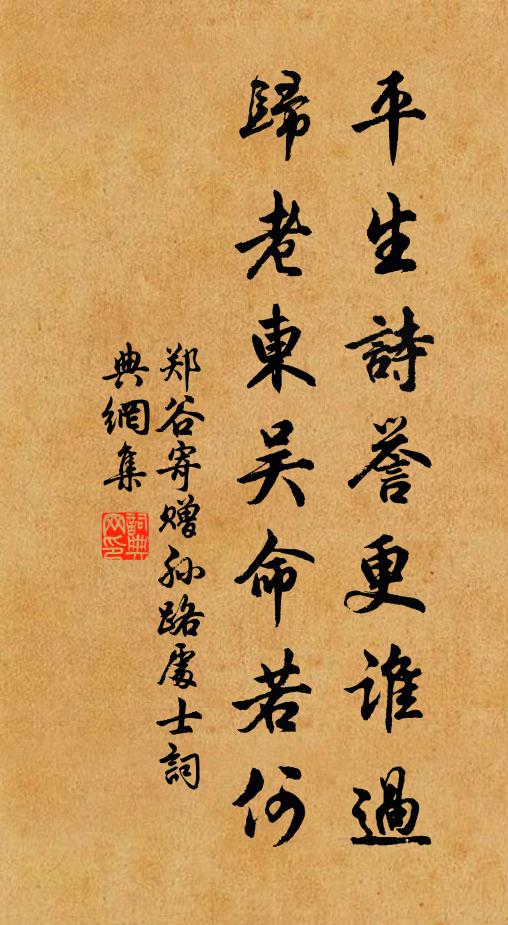 平生詩誉更誰過
歸老東吴命若何
郑谷寄赠孙路處士詞
典網集
詞典
网印